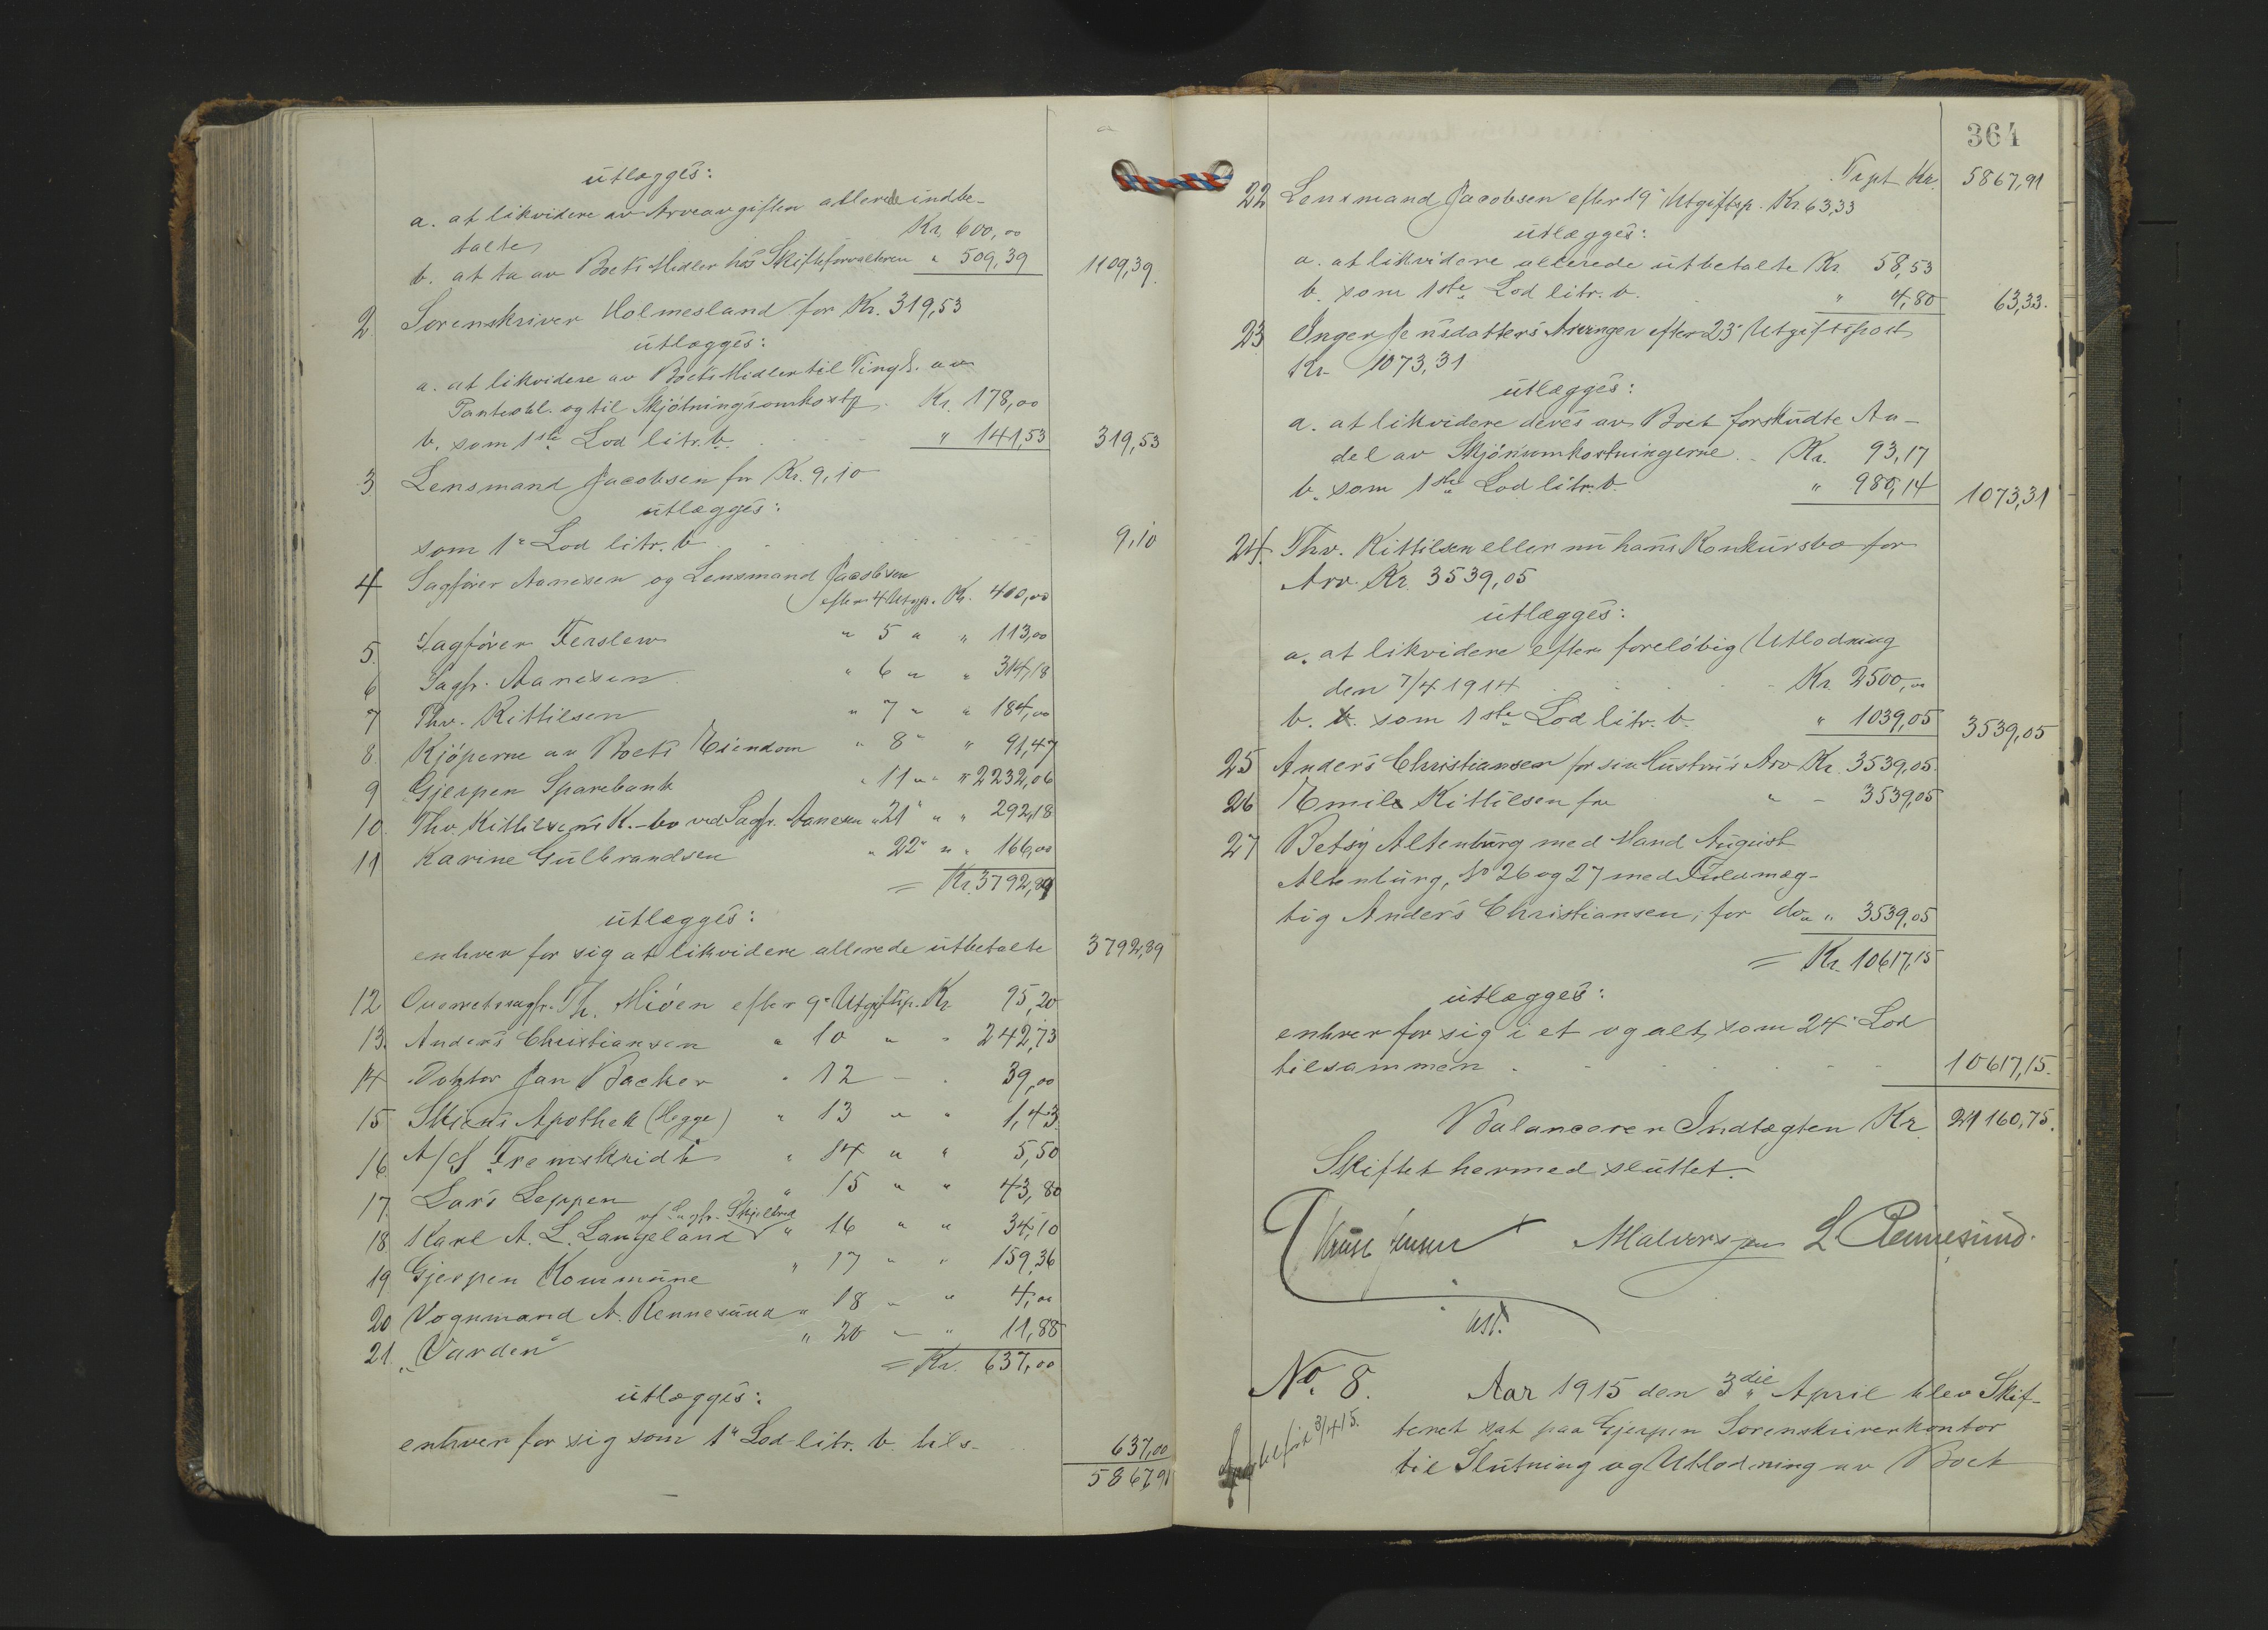 utlægges:
a. at likvidere av Arveavgiften allerede indbe-
talte Kr. 600,00
b. at ta av Boets Midler hos Skifteforvalteren " 509,39 1109,39
2 Sorenskriver Holmesland for Kr. 319,53
utlægges:
a. at likvidere av Boets Midler til Tingl. av
Panteobl. og til Skjötningsomkostn. Kr. 178,00
b. som 1ste Lod litr. b. " 141,53 319,53
3 Lensmand Jacobsen for Kr. 9,10
utlægges:
som 1" Lod litr. b 9,10
4 Sagförer Aanesen og Lensmand Jacobsen
efter 4 Utgp. Kr. 400,00
5. Sagförer Ferslew " 5 " " 113,00
6 Sagf. Aanesen " 6 " " 314,18
7 Thv. Kittilsen " 7 " " 184,00
8. Kjöperne av Boets Eiendom " 8 " " 91,47
9 Gjerpen Sparebank " 11 " " 2232,06
10. Thv. Kittilsens K.-bo ved Sagf. Aanesen " 21 " " 292,18
11 Karine Gulbrandsen " 22 " " 166,00
= Kr. 3792,89
utlægges:
enhver for sig at likvidere allerede utbetalte 3792,89
12. Overretssagf. Th. Miöen efter 9" Utgiftsp. Kr. 95,20
13. Anders Christiansen " 10 " " 242,73
14 Doktor Jan Backer " 12 - " 39,00
15 Skiens Apothek (Hegge) " 13 " " 1,43
16 A/S Fremskridt " 14 " " 5,50
17. Lars Leppen " 15 " " 43,80
18 Karl A. L. Langeland v/ Sagf. Skjelbred " 16 " " 34,10
19 Gjerpen Kommune " 17 " " 159,36
20 Vognmand A. Rennesund " 18 " " 4,00
21. "Varden" " 20 " " 11,88
= Kr. 637,00
utlægges:
enhver for sig som 1" Lod litr. b. tils. 637,00
5867,91
364
Trpt Kr. 5867,91
22 Lensmand Jacobsen efter 19" Utgiftsp. Kr. 63,33
utlægges:
a. at likvidere allerede utbetalte Kr. 58,53
b. som 1ste Lod litr. b. " 4,80 63,33.
23 Inger Jensdatters Arvinger efter 23" Utgiftspost
Kr. 1073,31
utlægges:
a. at likvidere deres av Boet forskudte An-
del av Skjönsomkostningerne. Kr. 93,17
b. som 1ste Lod litr. b. " 980,14 1073,31
24. Thv. Kittilsen eller nu hans Konkursbo for
Arv. Kr. 3539,05
utlægges:
a. at likvidere efter forelöbig Utlodning
den 7/4 1914 Kr. 2500,00
b. som 1ste Lod litr. b. " 1039,05 3539,05
25 Anders Christiansen for sin Hustrus Arv Kr. 3539,05.
26 Emil Kittilsen for " - 3539,05
27 Betsy Altenburg med Mand August
Altenburg, No 26 og 27 med Fuldmæg-
tig Anders Christiansen, for do " " 3539,05
= Kr. 10617,15
utlægges:
enhver for sig i et og alt som 24" Lod
tilsammen 10617,15.
Balancerer Indtægten Kr. 21160,75.
Skiftet hermed sluttet.
Kruse Jensen AHalvorsen L Rennesund.
ast.
No. 8. Aar 1915 den 3die April blev Skif-
teret sat paa Gjerpen Sorenskriverkontor
3/4 15.
til Slutning og Utlodning av Boet